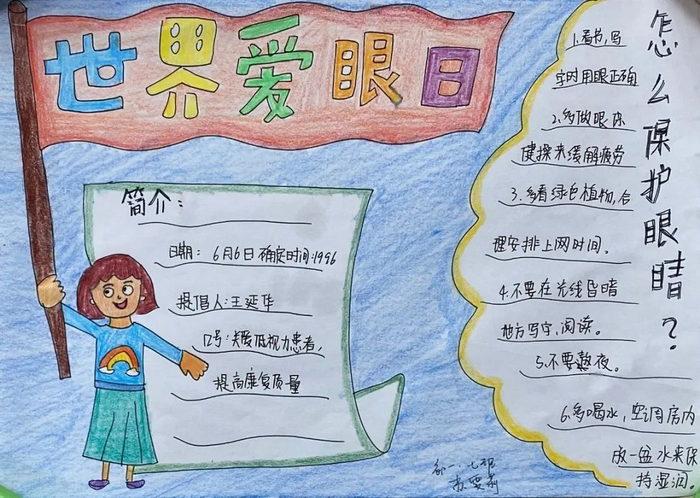 世界爱眼日
简介:
日期: 6月6日 确定时间:1996
提倡人:王延华
口号:关爱低视力患者,
提高康复质量
怎么保护眼睛?
1.看书,写
字时用眼正确
2.多做眼保
健操来缓解疲劳
3.多看绿色植物,合
理安排上网时间。
4.不要在光线昏暗
地方写字,阅读。
5.不要熬夜。
6.多喝水,空调房内
放一盆水来保
持湿润。